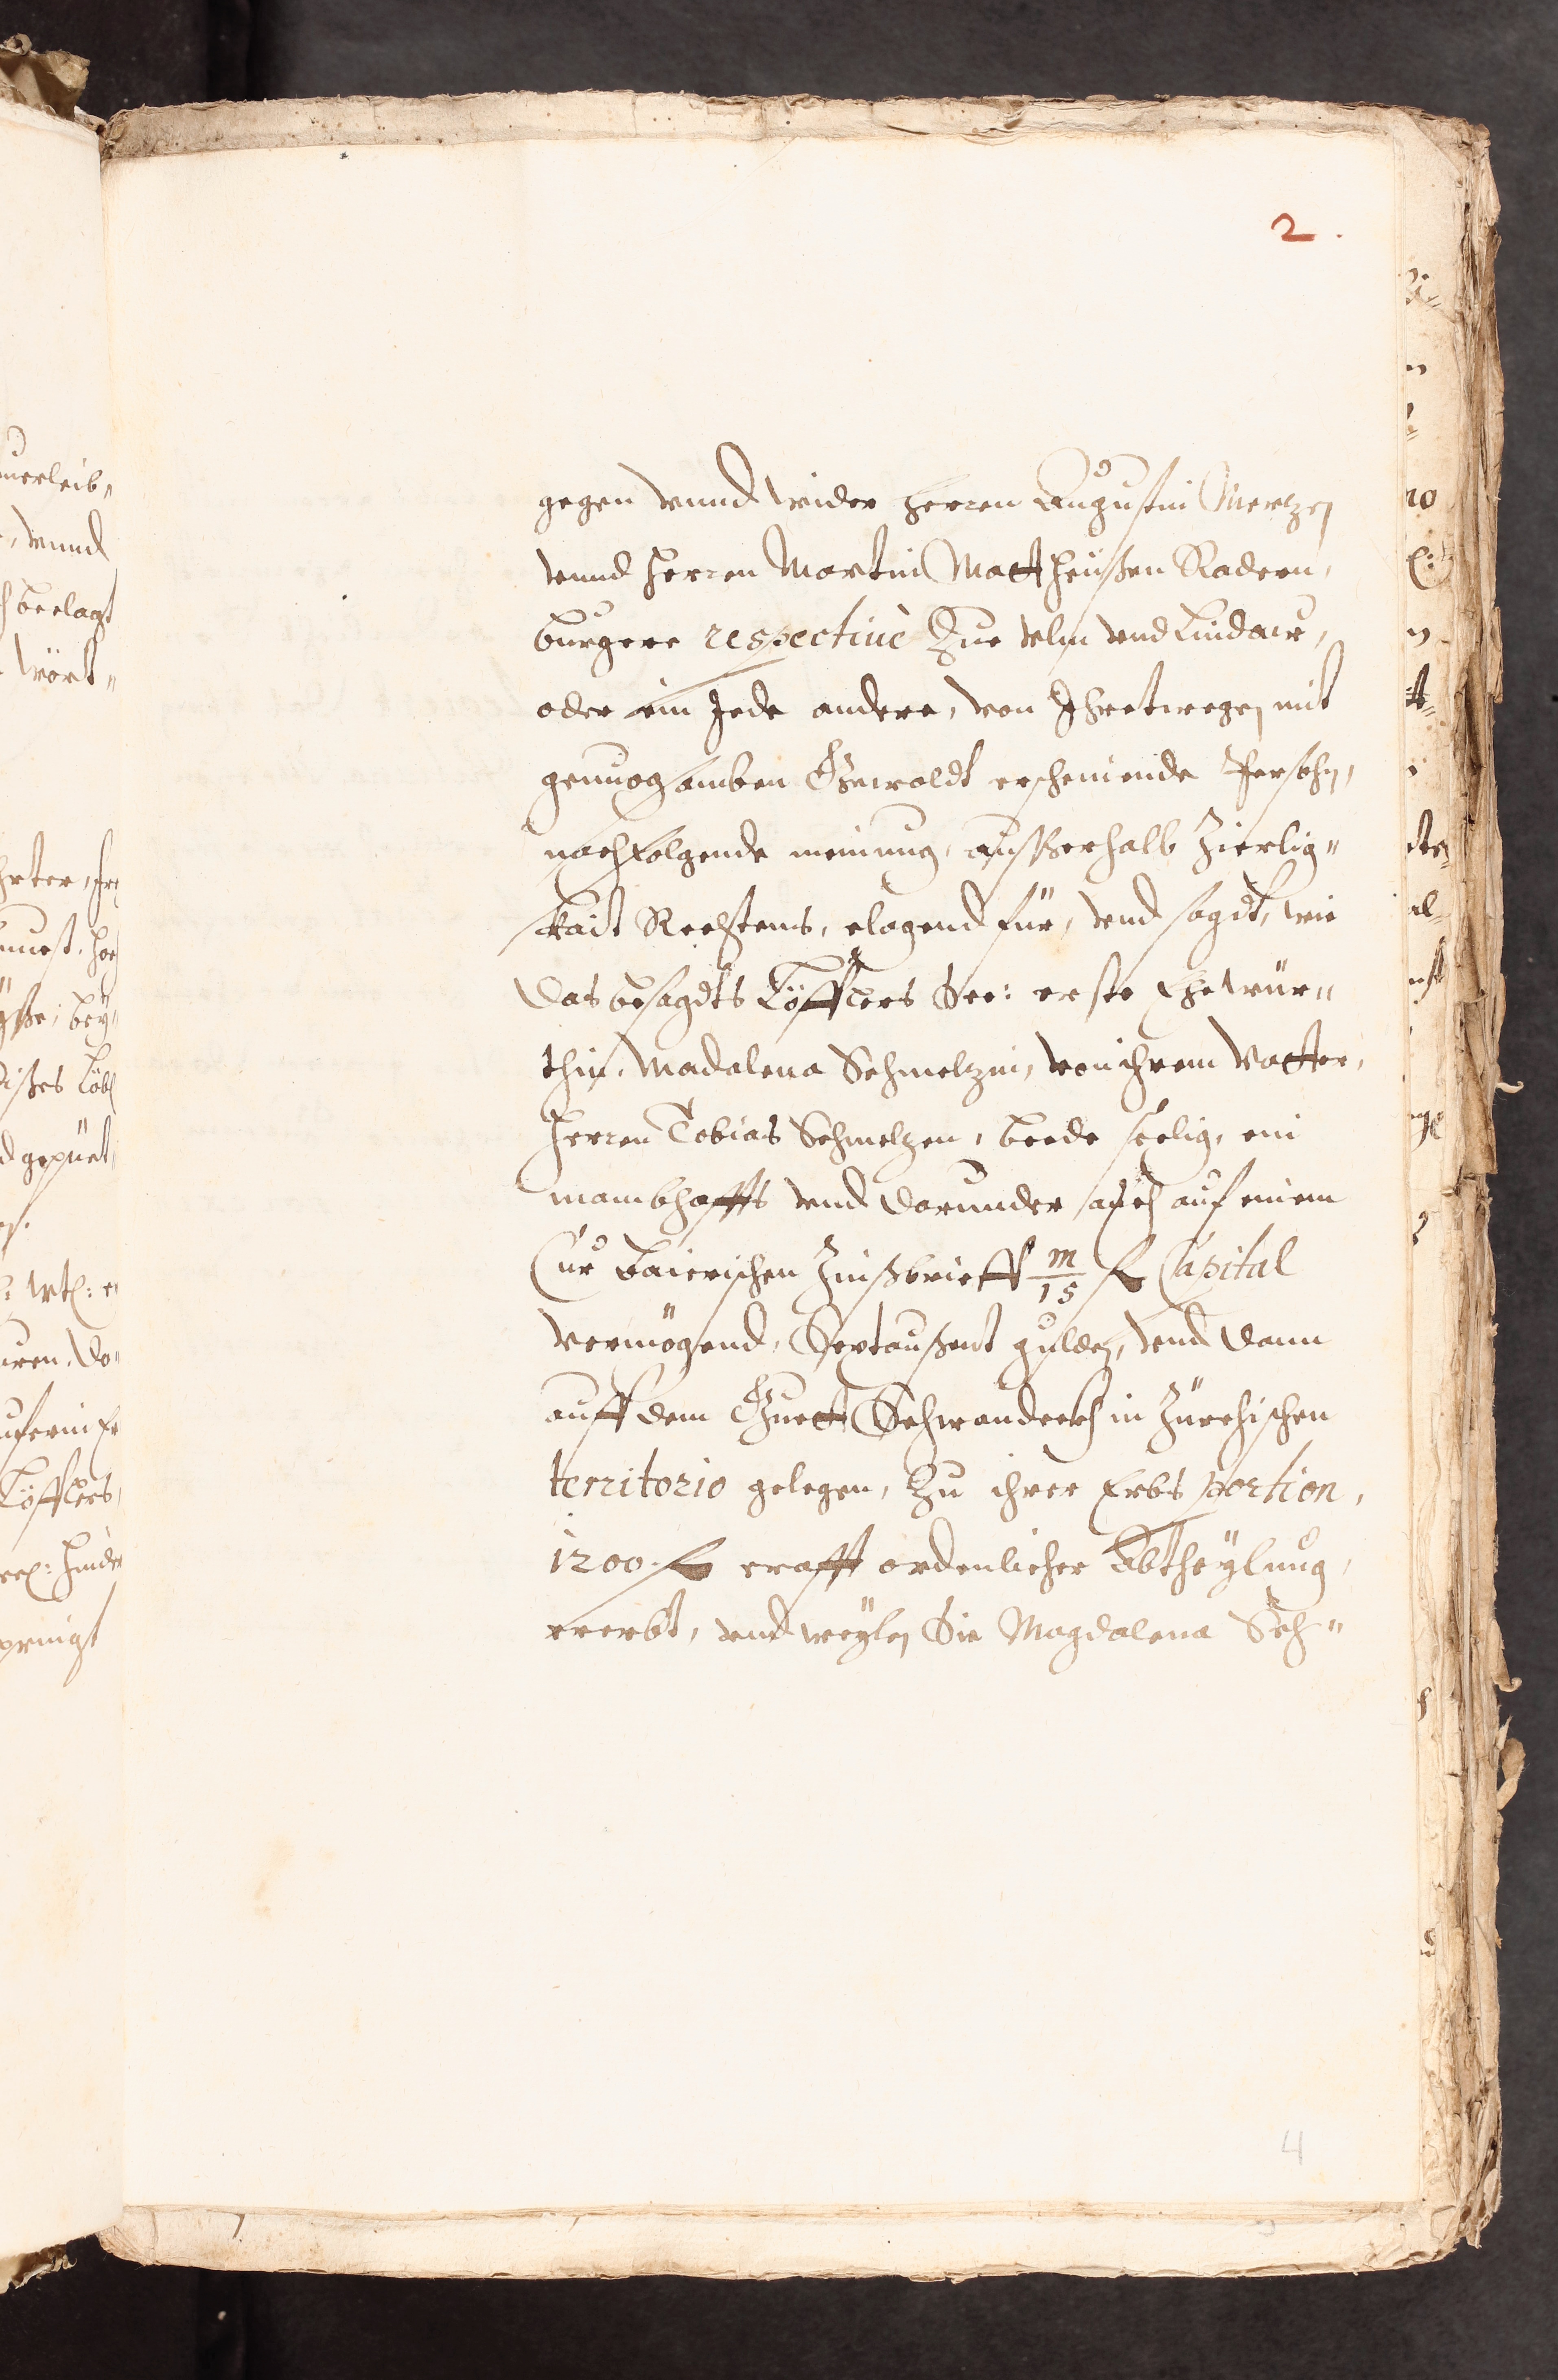 2.
gegen vnnd wider Herren Augustin Mertzen
vnnd Herren Martin Mattheüßen Radern,
burgere respectiuè Zue Vlm vnd Lindaw,
oder ein Jede andere, von Ihretwegen mit
genuogsamben Gewaldt erscheinende Persohn,
nachfolgende meinung, ausßerhalb Zierlig„
kait Rechtens, clagend für, vnd sagdt, wie
das besagdts Löfflers See: erste Ehewür„
thin, Madalena Schmelzin, von ihrem Vatter,
Herren Tobias Schmelzen, beede seelig, ein
nambhaffts vnd darunder auch auf einem
Cur Baierischen Zinßbrieff m/15 fl Capital
vermögend, Sextaußent gulden, vnd dann
auff dem Guett Schwandeckh in Zürchischen
territorio gelegen, Zu ihrer Erbs portion,
1200 fl crafft ordenlicher Abtheylung,
ererbt, vnd weylen Sie Magdalena Sch„
4